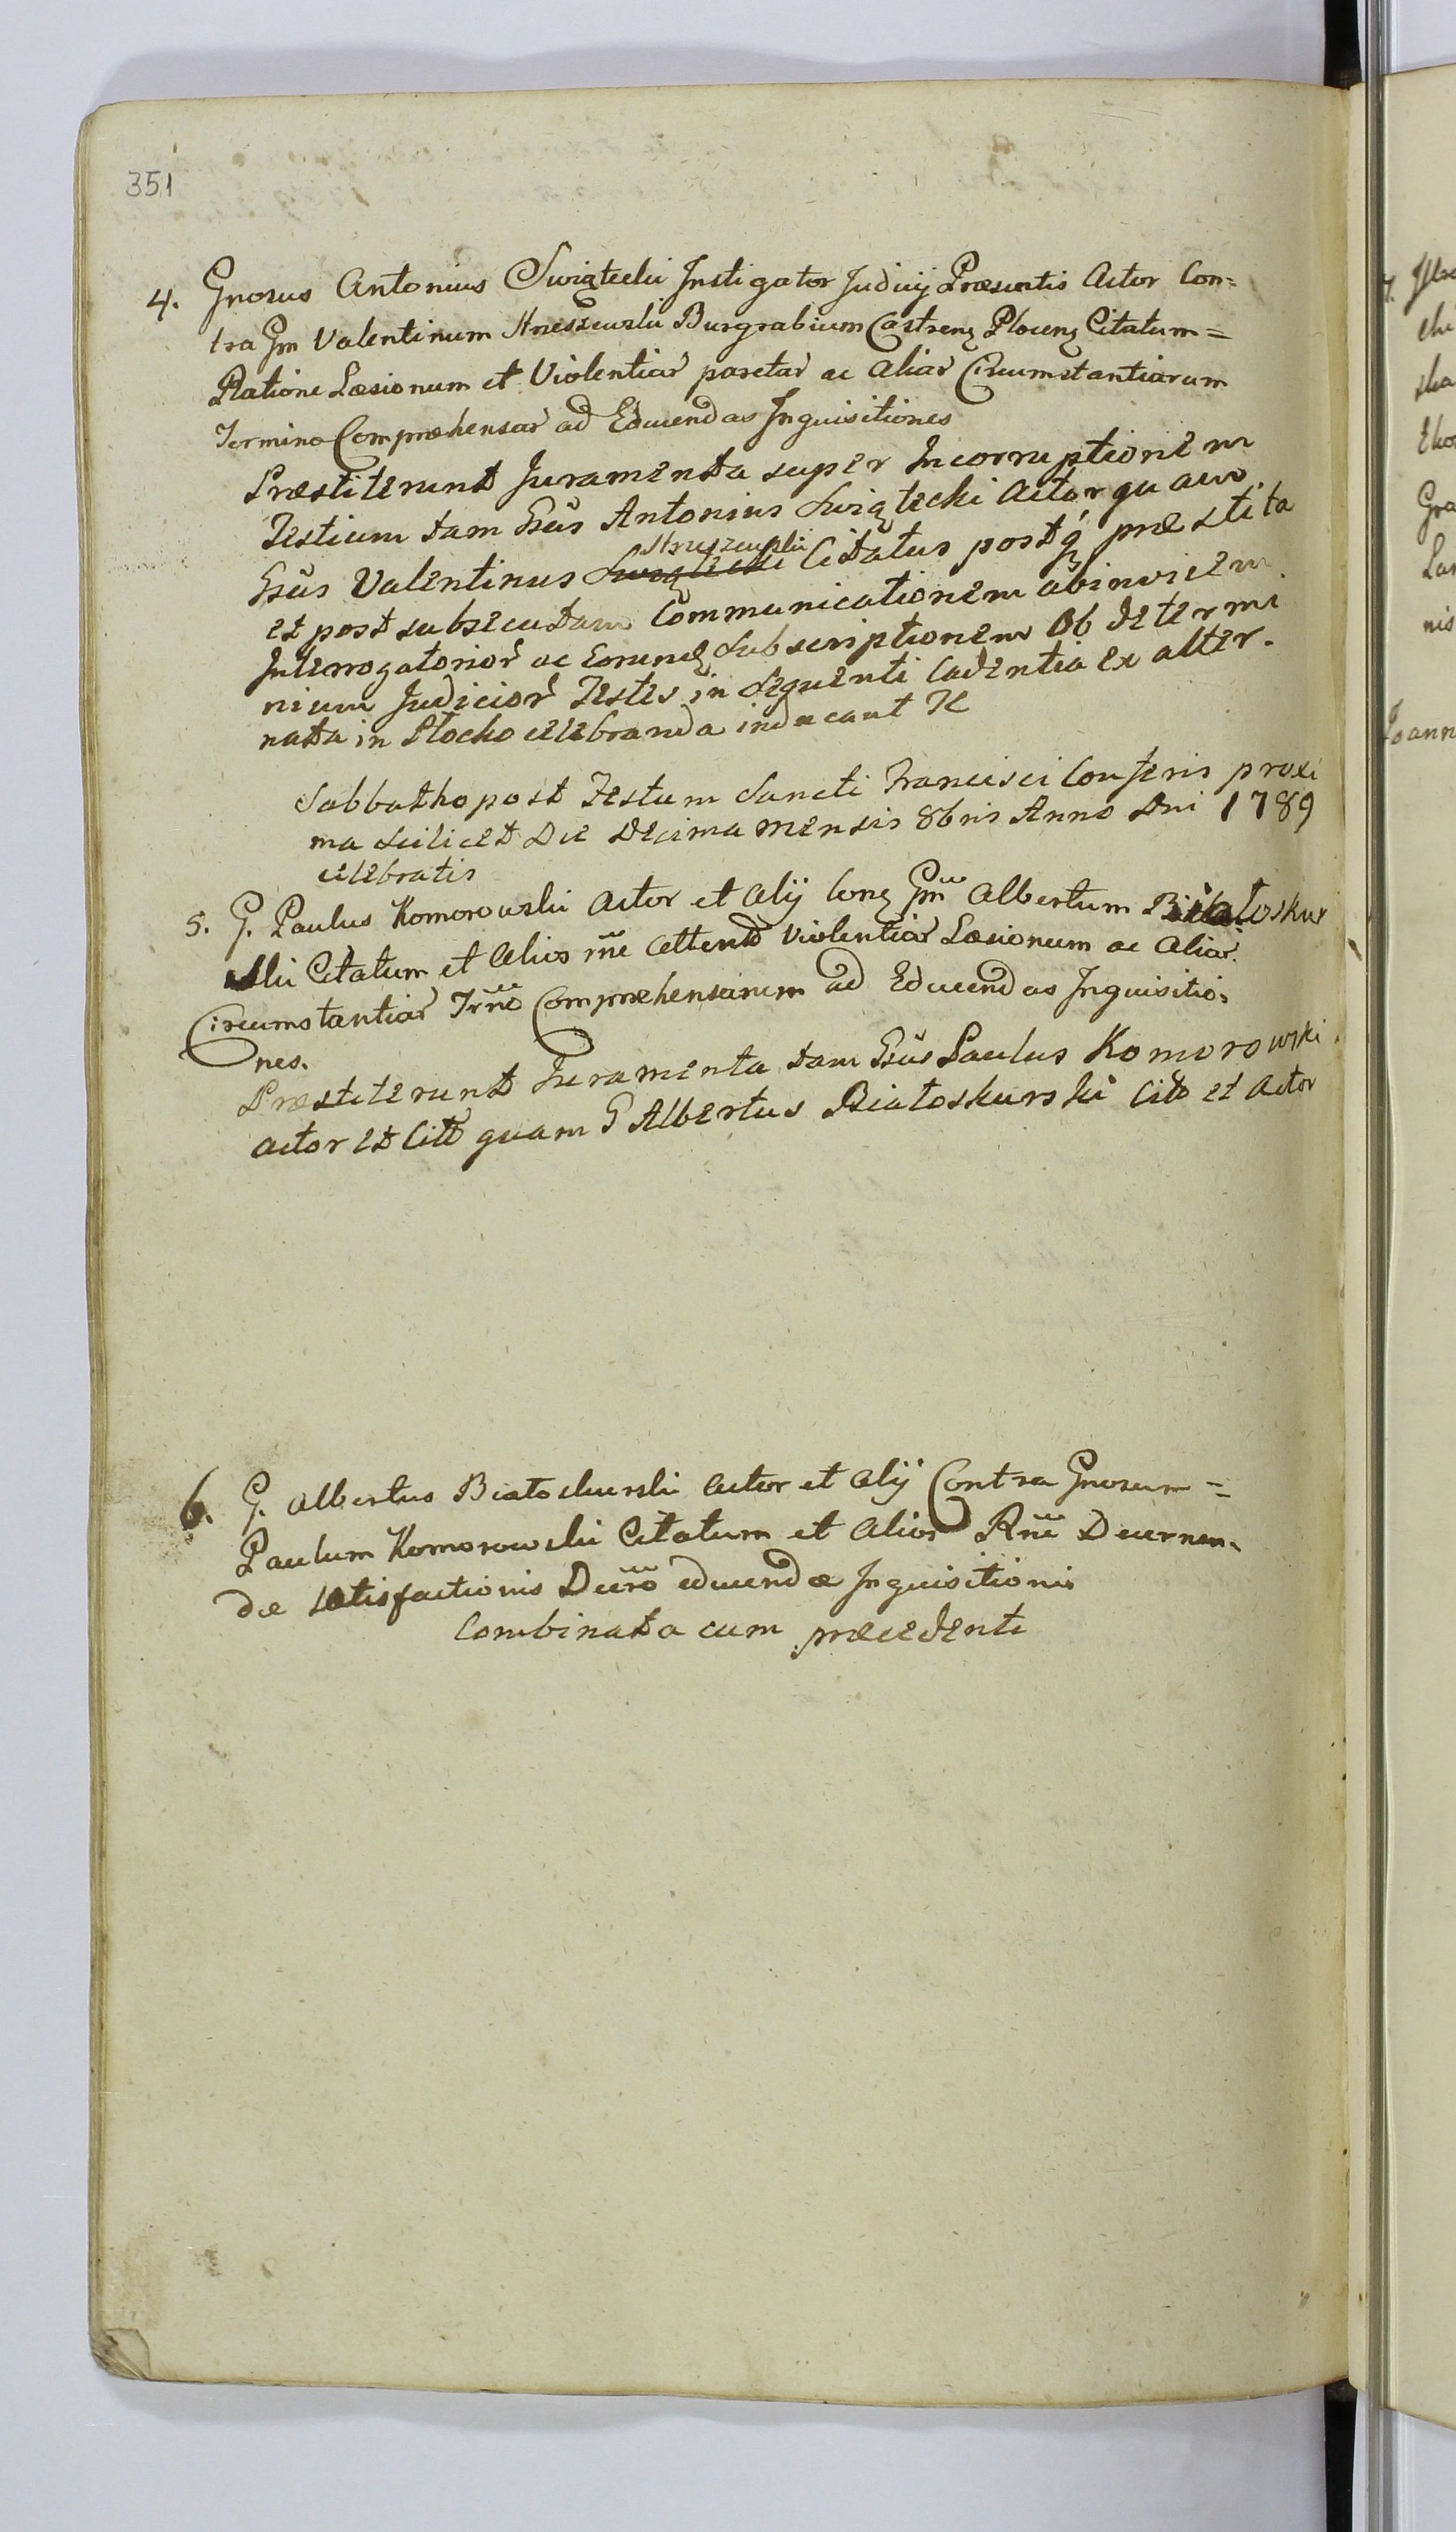 351
4. Gnosus Antonius Swiątecki Instigator Judicij Præsentis Actor Con=
tra Gm Valentinum Kneszewski Burgrabium Castrenę Plocenę Citatum=
Ratione Læsionum et Violentiar̃ patratar̃ ac Aliar̃ Circumstantiarum
Termino Compræhensar̃ ad Educendas Inquisitiones
Præstiterunt Juramenta super Incorruptionem
Testium tam Gsus Antonius Swiątecki Actor quam
Gsus Valentinus Swiątecki Kneszewski Citatus postq̃ præstita
et post subsecutam Communicationem abinvicem
Interrogatorior̃ ac Eorundę Subscriptionem Ob determi
nium Judicior̃ Testes in sequenti Cadentia ex alter-
nata in Płocko celebranda inducant
Sabbatho post Festum Sancti Francisci Confesris proxi
ma scilicet Die Decima mensis 8bris Anno Dni 1789
celebratis
5. G. Paulus Komorowski Actor et Alij Conę Gm Albertum Białoskur
ski Citatum et Alios rñe Attent Violentiar̃ Læsionum ac Aliar.
Circumstantiar̃ Trño Compræhensarum ad Educendas Inquisitio=
nes.
Præstiterunt Juramenta tam Gsus Paulus Komorowski
Actor et Citt quam G Albertus Białoskurski Citt et Actor
6. G. Albertus Białoskurski Actor et Alij Contra Gnosum =
Paulum Komorowski Citatum et Alios Rñe Decernen=
dæ Satisfactionis Decro educendæ Inquisitionis
Combinata cum præcedenti